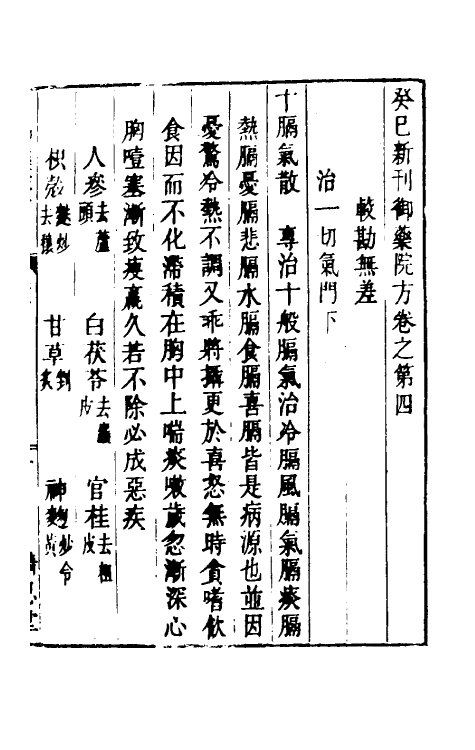 癸巳新刊御藥院方卷之第四
較勘無差
治一切氣門下
十膈氣散 專治十般膈氣治冷膈風膈氣膈痰膈
熱膈憂膈悲膈水膈食膈喜膈皆是病源也並因
憂驚冷熱不調又乖將攝更於喜怒無時貪嗜飲
食因而不化滯積在胸中上喘痰嗽歲忽漸深心
胸噎塞漸致瘦羸久若不除必成惡疾
人參去蘆頭 白茯苓去麤皮 官桂去粗皮
枳殼麩炒去穰 甘草剉炙 神麴炒令黃